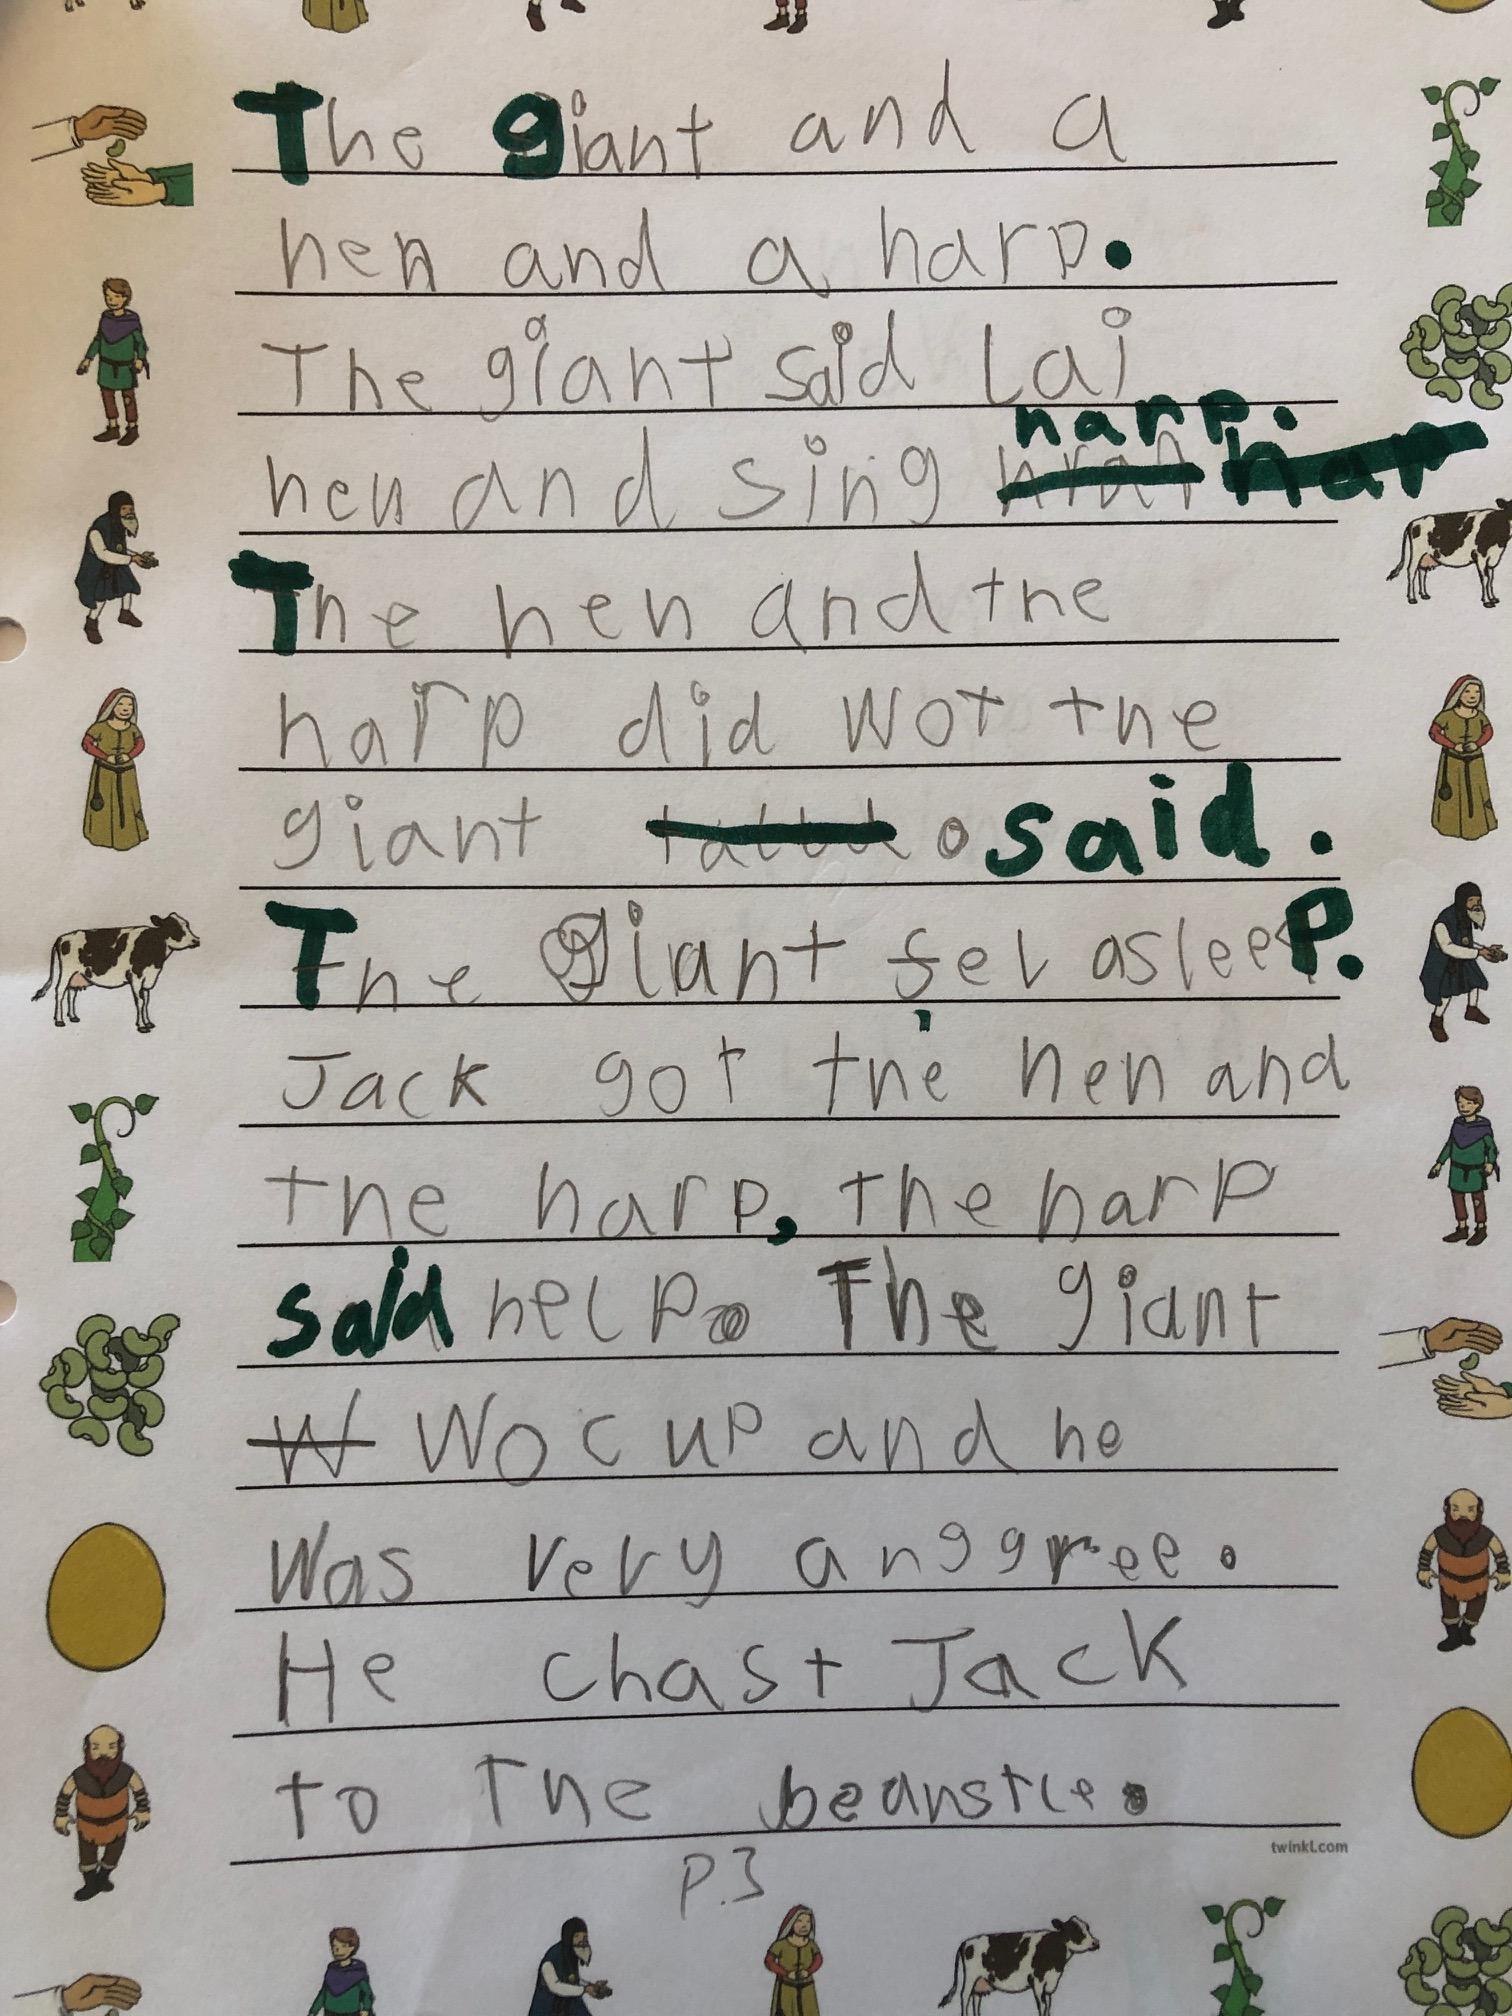 The giant and a
hen and a harp.
The giant said Lai
harp.
hen and sing har
The hen and the
harp did wot the
giant said.
The giant fel asleep.
Jack got the hen and
the harp, the harp
said help. The giant
W Woc up and he
was very anggree.
He chast Jack
to The beanstle.
twinkl.com
P.3